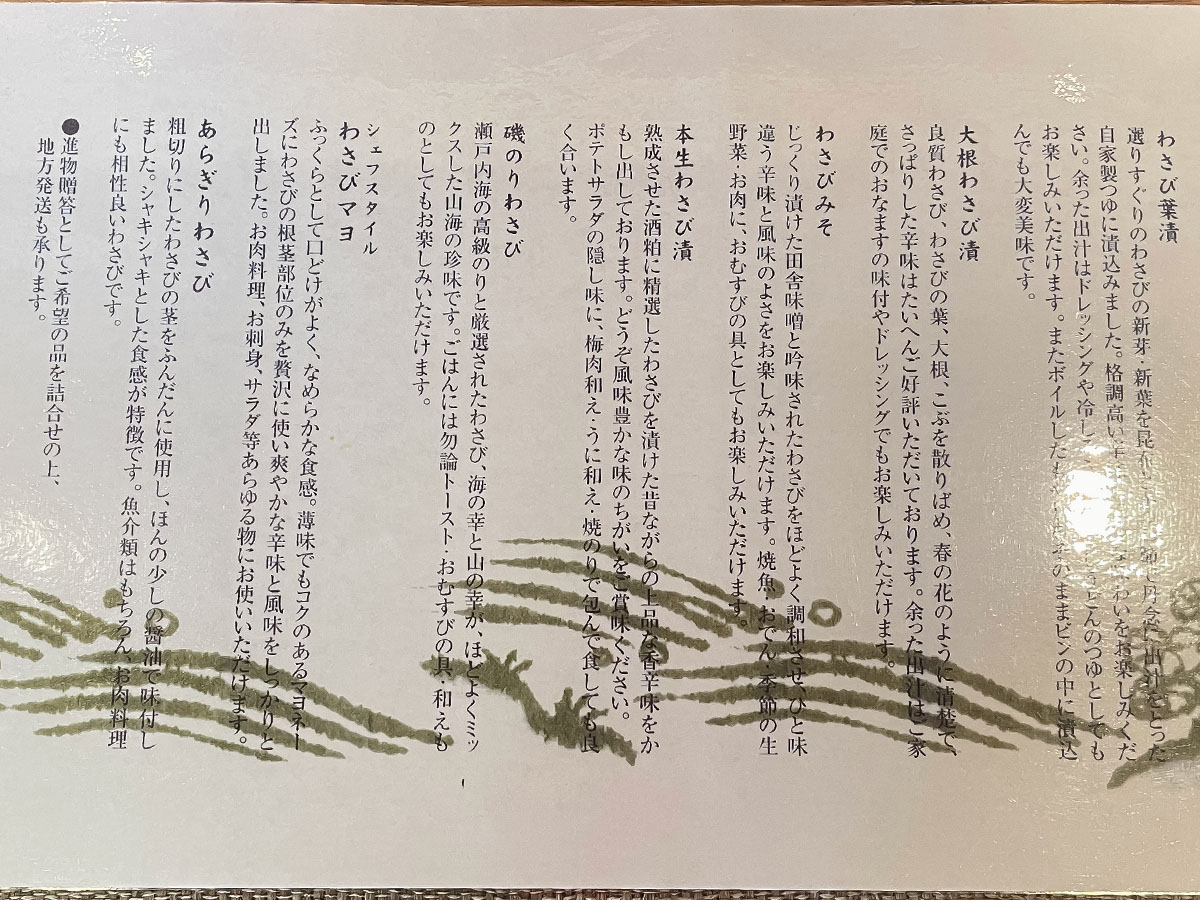 わさび葉漬
選りすぐりのわさびの新芽・新葉を昆布 と丹念に出汁をとった
自家製つゆに漬込みました。格調高い わいをお楽しみくだ
さい。余った出汁はドレッシングや冷し うどんのつゆとしても
お楽しみいただけます。またボイルした のままビンの中に漬込
んでも大変美味です。
大根わさび漬
良質わさび、わさびの葉、大根、こぶを散りばめ、春の花のように清楚で、
さっぱりした辛味はたいへんご好評いただいております。余った出汁はご家
庭でのおなますの味付やドレッシングでもお楽しみいただけます。
わさびみそ
じっくり漬けた田舎味噌と吟味されたわさびをほどよく調和させ、ひと味
違う辛味と風味のよさをお楽しみいただけます。焼魚、おでん・季節の生
野菜・お肉に、おむすびの具としてもお楽しみいただけます。
本生わさび漬
熟成させた酒粕に精選したわさびを漬けた昔ながらの上品な香辛味をか
もし出しております。どうぞ風味豊かな味のちがいをご賞味ください。
ポテトサラダの隠し味に、梅肉和え・うに和え・焼のりで包んで食しても良
く合います。
磯のりわさび
瀬戸内海の高級のりと厳選されたわさび、海の幸と山の幸が、ほどよくミッ
クスした山海の珍味です。ごはんには勿論トースト・おむすびの具、和えも
のとしてもお楽しみいただけます。
シェフスタイル
わさびマヨ
ふっくらとして口どけがよく、なめらかな食感。薄味でもコクのあるマヨネー
ズにわさびの根茎部位のみを贅沢に使い爽やかな辛味と風味をしっかりと
出しました。お肉料理、お刺身、サラダ等あらゆる物にお使いいただけます。
あらぎりわさび
粗切りにしたわさびの茎をふんだんに使用し、ほんの少しの醤油で味付し
ました。シャキシャキとした食感が特徴です。魚介類はもちろん、お肉料理
にも相性良いわさびです。
●進物贈答としてご希望の品を詰合せの上、
地方発送も承ります。